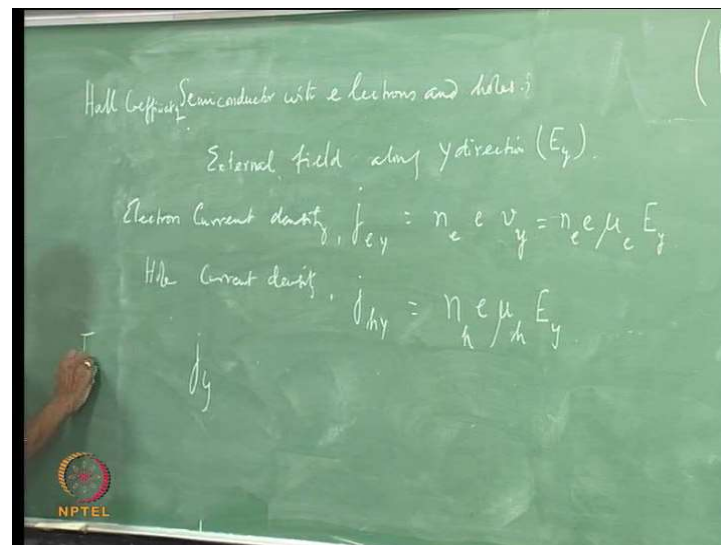 Hall Coefficient Semiconductor with electrons and holes:
External field along y direction (E_y).
Electron Current density, j_ey = n_e e v_y = n_e e μ_e E_y
Hole Current density, j_hy = n_h e μ_h E_y
j_y
NPTEL